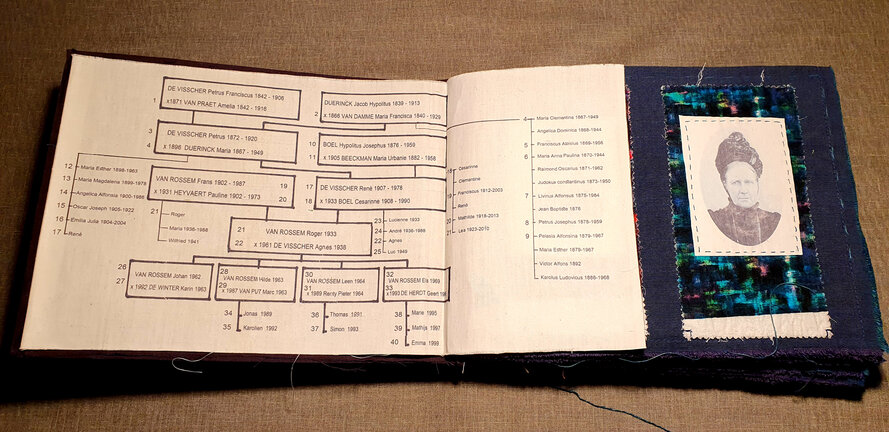 DE VISSCHER Petrus Franciscus 1842 - 1906
1 x1871 VAN PRAET Amelia 1842 - 1916
DUERINCK Jacob Hypolitus 1839 - 1913
2 x 1866 VAN DAMME Maria Francisca 1840 - 1929
3 DE VISSCHER Petrus 1872 - 1920
4 x 1896 DUERINCK Maria 1867 - 1949
10 BOEL Hypolitus Josephus 1876 - 1959
11 x 1905 BEECKMAN Maria Urbanie 1882 - 1956
12 Maria Esther 1898-1963
13 Maria Magdalena 1899-1978
14 Angelica Alfonsia 1900-1986
15 Oscar Joseph 1905-1922
16 Emilia Julia 1904-2004
17 René
VAN ROSSEM Frans 1902 - 1987 19
x 1931 HEYVAERT Pauline 1902 - 1973 20
17 DE VISSCHER René 1907 - 1978
18 x 1933 BOEL Cesarinne 1908 - 1990
18 Césarinne
Clementine
19 Franciscus 1912-2003
René
20 Mathilde 1918-2013
21 Lea 1923-2010
21 Roger
Maria 1936-1936
Wilfried 1941
21 VAN ROSSEM Roger 1933
22 x 1961 DE VISSCHER Agnes 1938
23 Lucienne 1933
24 André 1936-1988
22 Agnes
25 Luc 1945
26 VAN ROSSEM Johan 1962
27 x 1982 DE WINTER Karin 1963
28 VAN ROSSEM Hilde 1963
29 x 1987 VAN PUT Marc 1963
30 VAN ROSSEM Leen 1964
31 x 1989 Renty Pieter 1964
32 VAN ROSSEM Els 1969
33 x 1993 DE HERDT Geert
34 Jonas 1989
35 Karolien 1992
36 Thomas 1991
37 Simon 1993
38 Marie 1995
39 Mathijs 1997
40 Emma 1999
4 Maria Clementina 1867-1949
Angelica Dominica 1868-1944
5 Franciscus Aloisius 1869-1956
6 Maria Anna Paulina 1870-1944
Raimond Oscarius 1871-1962
Judoxua constantinus 1873-1950
7 Livinus Alfonsus 1875-1964
Jean Baptiste 1876
8 Petrus Josephus 1878-1959
9 Pelasia Alfonsina 1879-1967
Maria Esther 1879-1967
Victor Alfons 1892
Karolus Ludovicus 1886-1968